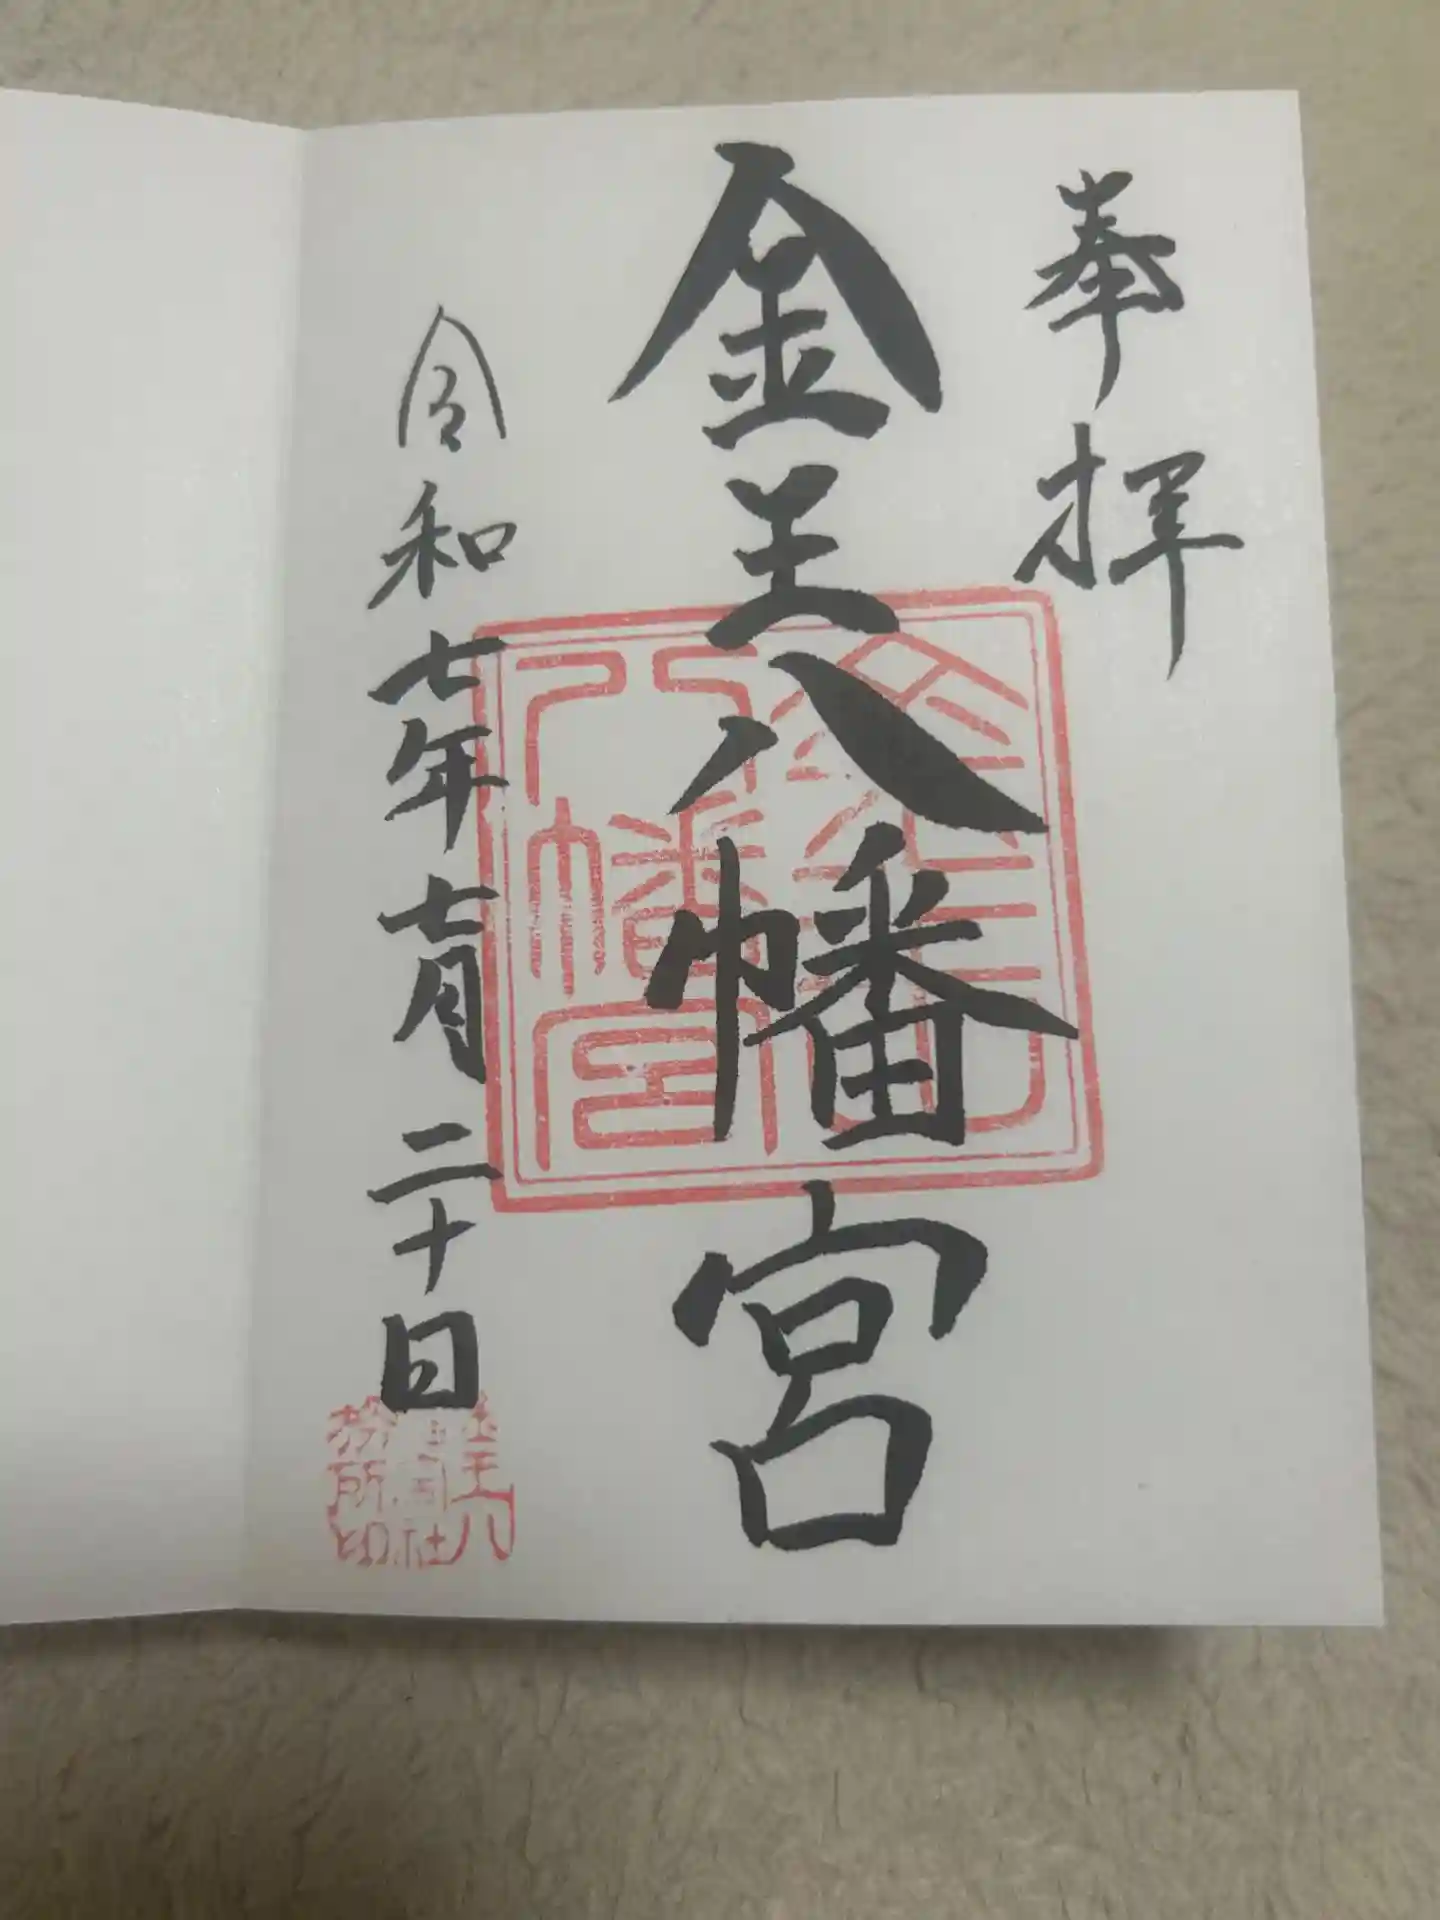 奉拝
金王八幡宮
令和七年七月二十日
金王八
幡宮社
務所印